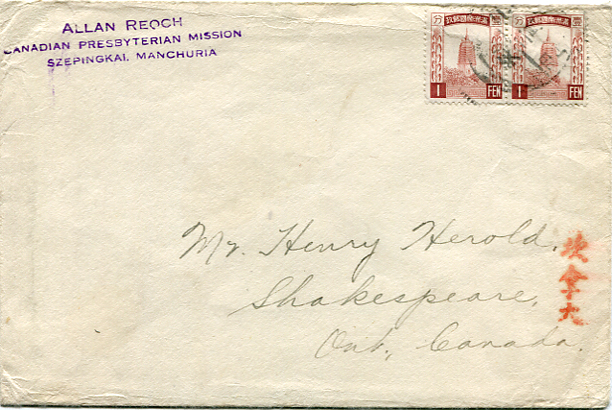 ALLAN REOCH
CANADIAN PRESBYTERIAN MISSION
SZEPINGKAI, MANCHURIA
1 FEN
1 FEN
Mr. Henry Herold,
Shakespeare,
Ont., Canada.
坎拿大